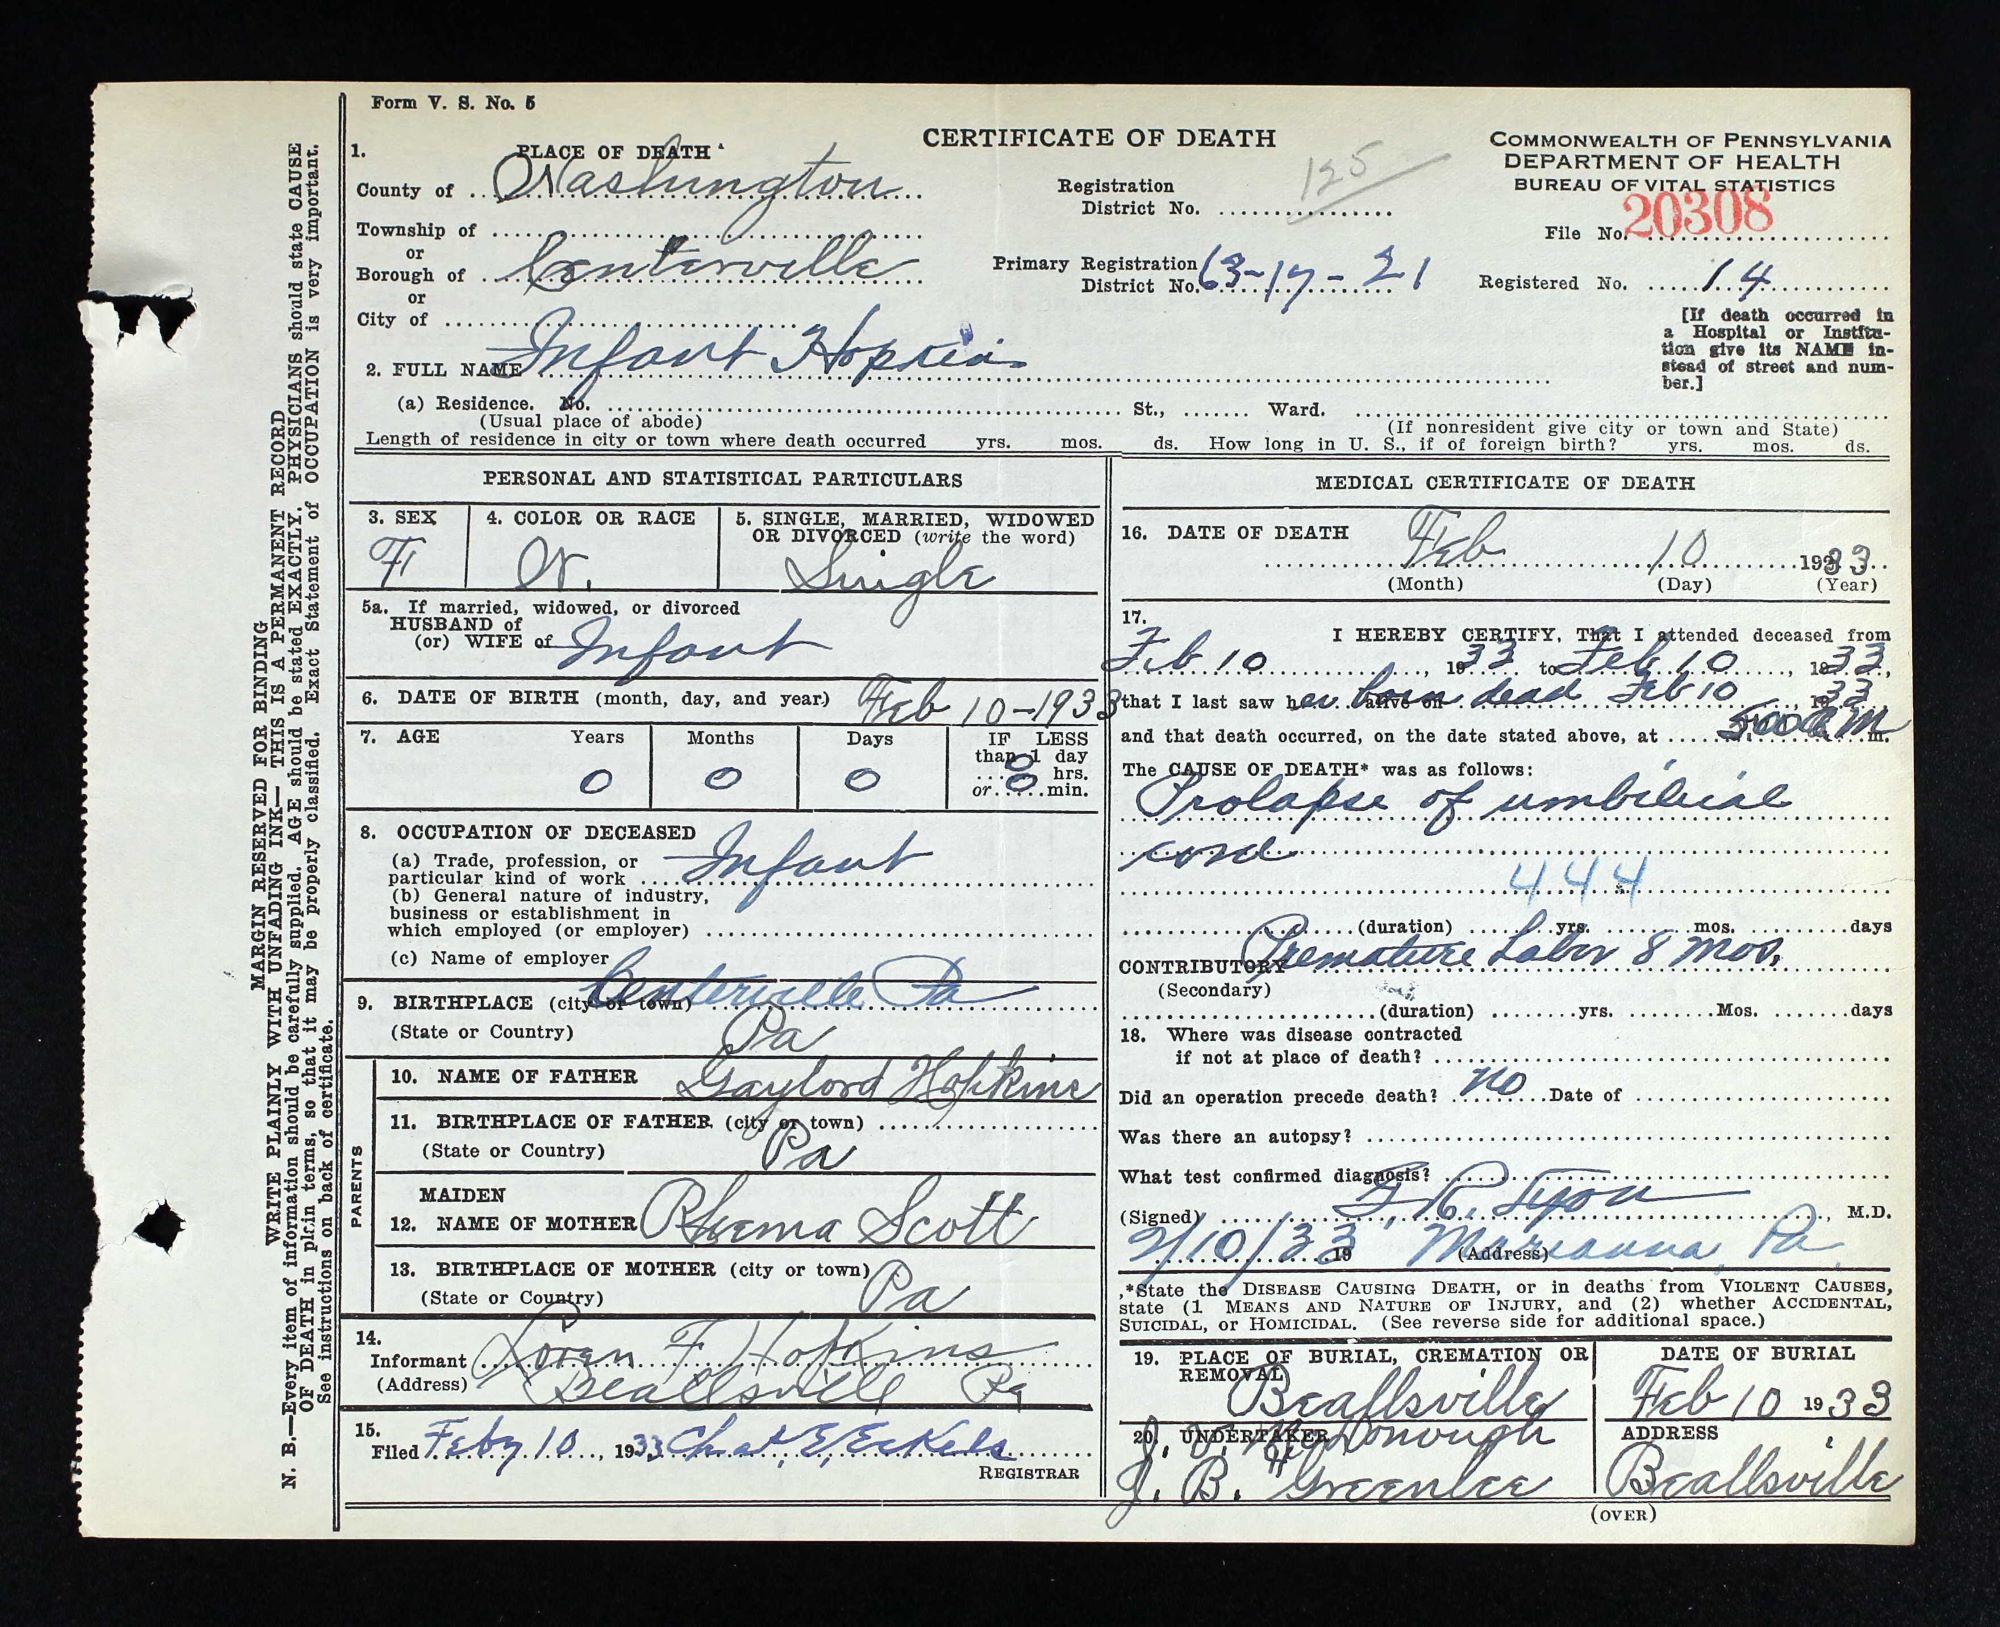 Form V. S. No. 5
CERTIFICATE OF DEATH
COMMONWEALTH OF PENNSYLVANIA
DEPARTMENT OF HEALTH
BUREAU OF VITAL STATISTICS
125
1. PLACE OF DEATH
County of Washington
Registration District No.
File No. 20308
Township of
or
Borough of Centerville
Primary Registration District No. 63-17-21
Registered No. 14
or
City of
[If death occurred in
a Hospital or Institu-
tion give its NAME in-
stead of street and num-
ber.]
2. FULL NAME Infant Hopkins
(a) Residence. No. St., Ward.
(Usual place of abode) (If nonresident give city or town and State)
Length of residence in city or town where death occurred yrs. mos. ds. How long in U. S., if of foreign birth? yrs. mos. ds.
PERSONAL AND STATISTICAL PARTICULARS
3. SEX F
4. COLOR OR RACE W.
5. SINGLE, MARRIED, WIDOWED
OR DIVORCED (write the word)
Single
5a. If married, widowed, or divorced
HUSBAND of
(or) WIFE of Infant
6. DATE OF BIRTH (month, day, and year) Feb 10-1933
7. AGE Years Months Days IF LESS
than 1 day
0 0 0 0 hrs.
or 0 min.
8. OCCUPATION OF DECEASED
(a) Trade, profession, or
particular kind of work Infant
(b) General nature of industry,
business or establishment in
which employed (or employer)
(c) Name of employer
9. BIRTHPLACE (city or town) Centerville Pa
(State or Country) Pa
PARENTS
10. NAME OF FATHER Gaylord Hopkins
11. BIRTHPLACE OF FATHER (city or town)
(State or Country) Pa
MAIDEN
12. NAME OF MOTHER Rhema Scott
13. BIRTHPLACE OF MOTHER (city or town) Pa
(State or Country)
14.
Informant Loren F Hopkins
(Address) Beallsville Pa
15.
Filed Feby 10, 1933 Chas. E. Eckels
REGISTRAR
MEDICAL CERTIFICATE OF DEATH
16. DATE OF DEATH Feb 10 1933
(Month) (Day) (Year)
17.
I HEREBY CERTIFY, That I attended deceased from
Feb 10, 1933 to Feb 10, 1933
that I last saw her alive on born dead Feb 10 1933
and that death occurred, on the date stated above, at 5:00 a m m.
The CAUSE OF DEATH* was as follows:
Prolapse of umbilical
cord
444
(duration) yrs. mos. days
CONTRIBUTORY Premature Labor 8 mos.
(Secondary)
(duration) yrs. Mos. days
18. Where was disease contracted
if not at place of death?
Did an operation precede death? no Date of
Was there an autopsy?
What test confirmed diagnosis?
(Signed) R. Lyon, M.D.
2/10/33 19 (Address) Marianna, Pa
*State the DISEASE CAUSING DEATH, or in deaths from VIOLENT CAUSES,
state (1 MEANS AND NATURE OF INJURY, and (2) whether ACCIDENTAL,
SUICIDAL, or HOMICIDAL. (See reverse side for additional space.)
19. PLACE OF BURIAL, CREMATION OR
REMOVAL
Beallsville
DATE OF BURIAL
Feb 10 1933
20. UNDERTAKER
J. V. McDonough
J. B. Greenlee
ADDRESS
Beallsville
(OVER)
MARGIN RESERVED FOR BINDING
WRITE PLAINLY WITH UNFADING INK—THIS IS A PERMANENT RECORD
N. B.—Every item of information should be carefully supplied. AGE should be stated EXACTLY. PHYSICIANS should state CAUSE
OF DEATH in plain terms, so that it may be properly classified. Exact Statement of OCCUPATION is very important.
See instructions on back of certificate.